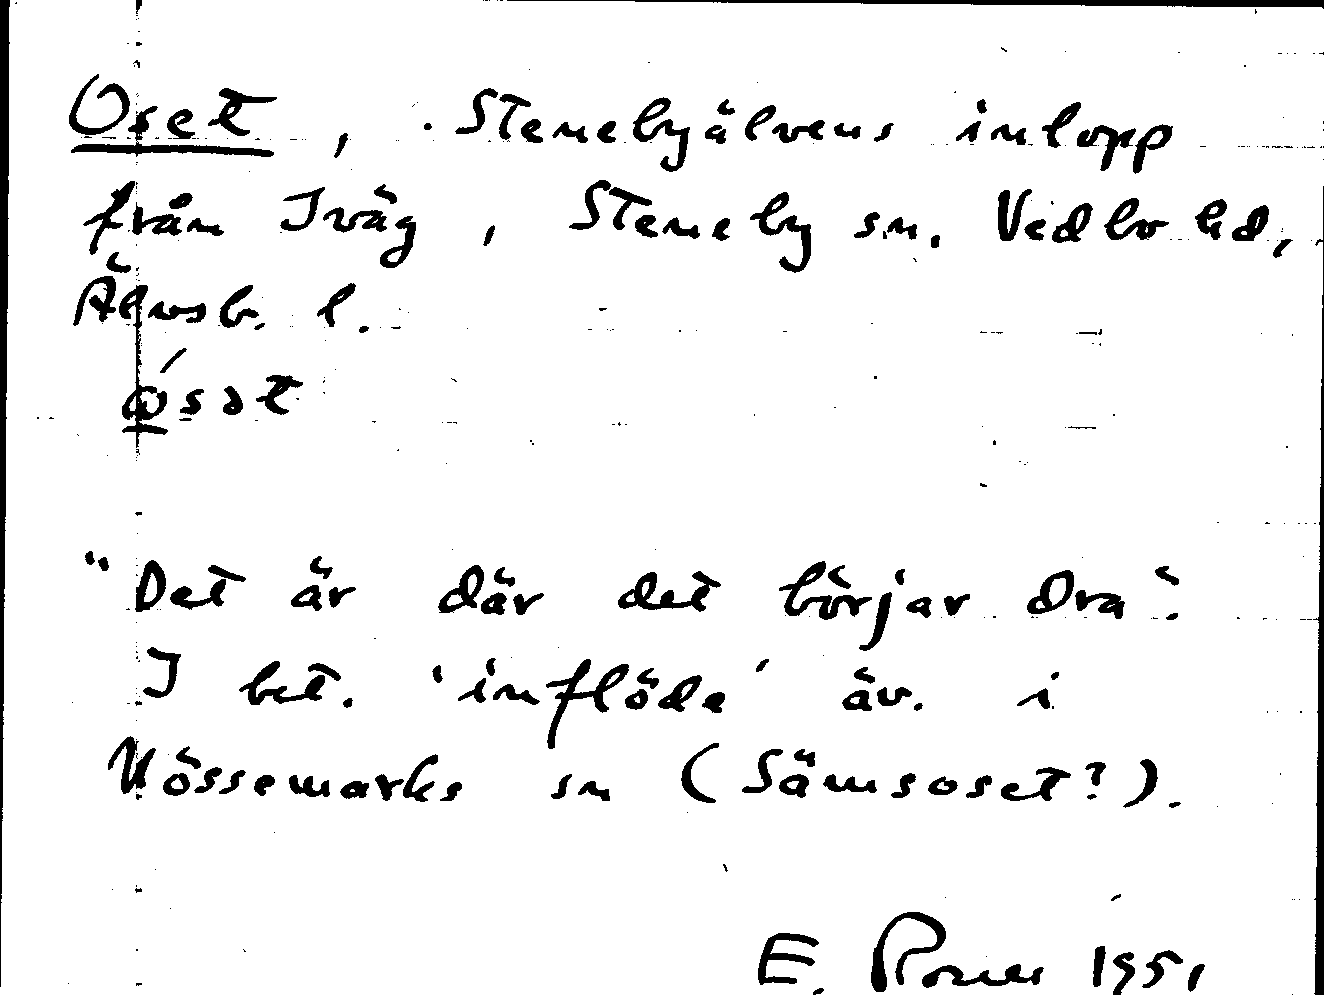 Oset, Stenebyälvens inlopp
från Iväg, Steneby sn. Vedbo hd,
Älvsb. l.
ó̱sət
"Det är där det börjar dra".
I bet. 'inflöde' äv. i
Nössemarks sn (Sämsoset?).
E. 1951